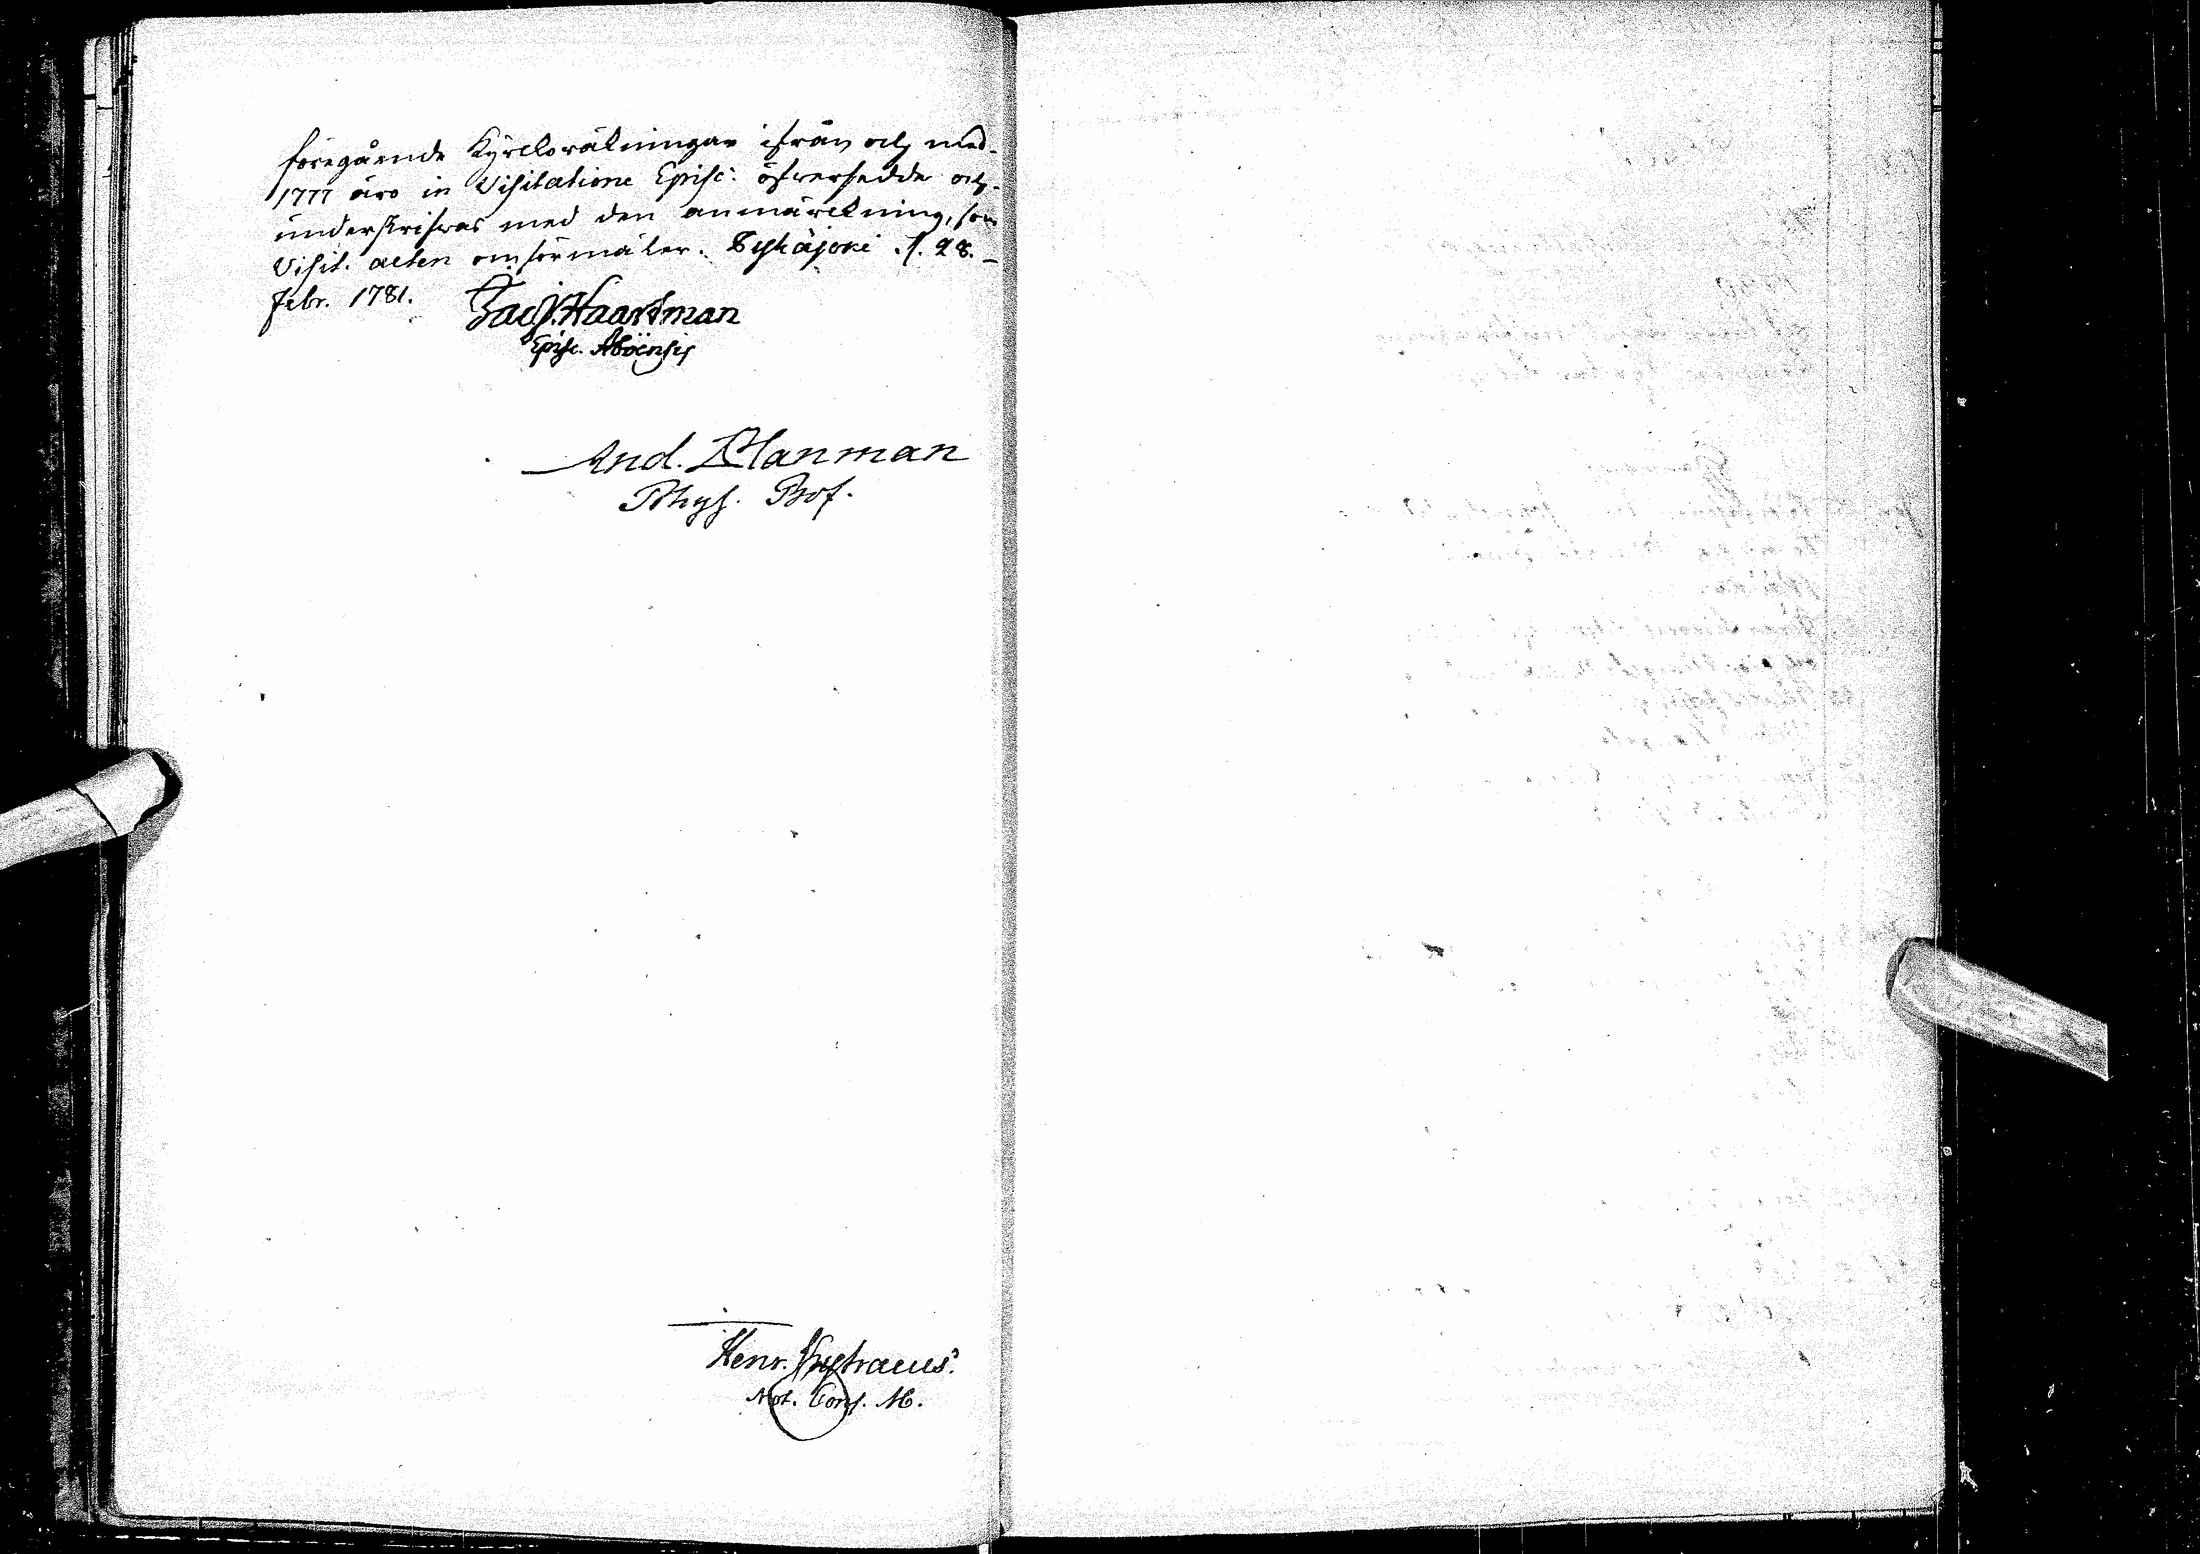 föregående Kyrckoräkningar ifrån och med
1777 äro in Visitatione Episc: öfwersedde och
underskrifwas med den anmärckning, som
Visit. acten omförmäler. Pyhäjoki d. 28.
Febr. 1781.
Jac. Haartman
Episc. Aboënsis
And. Planman
Phys. Prof.
Henr.
Not. Cons.